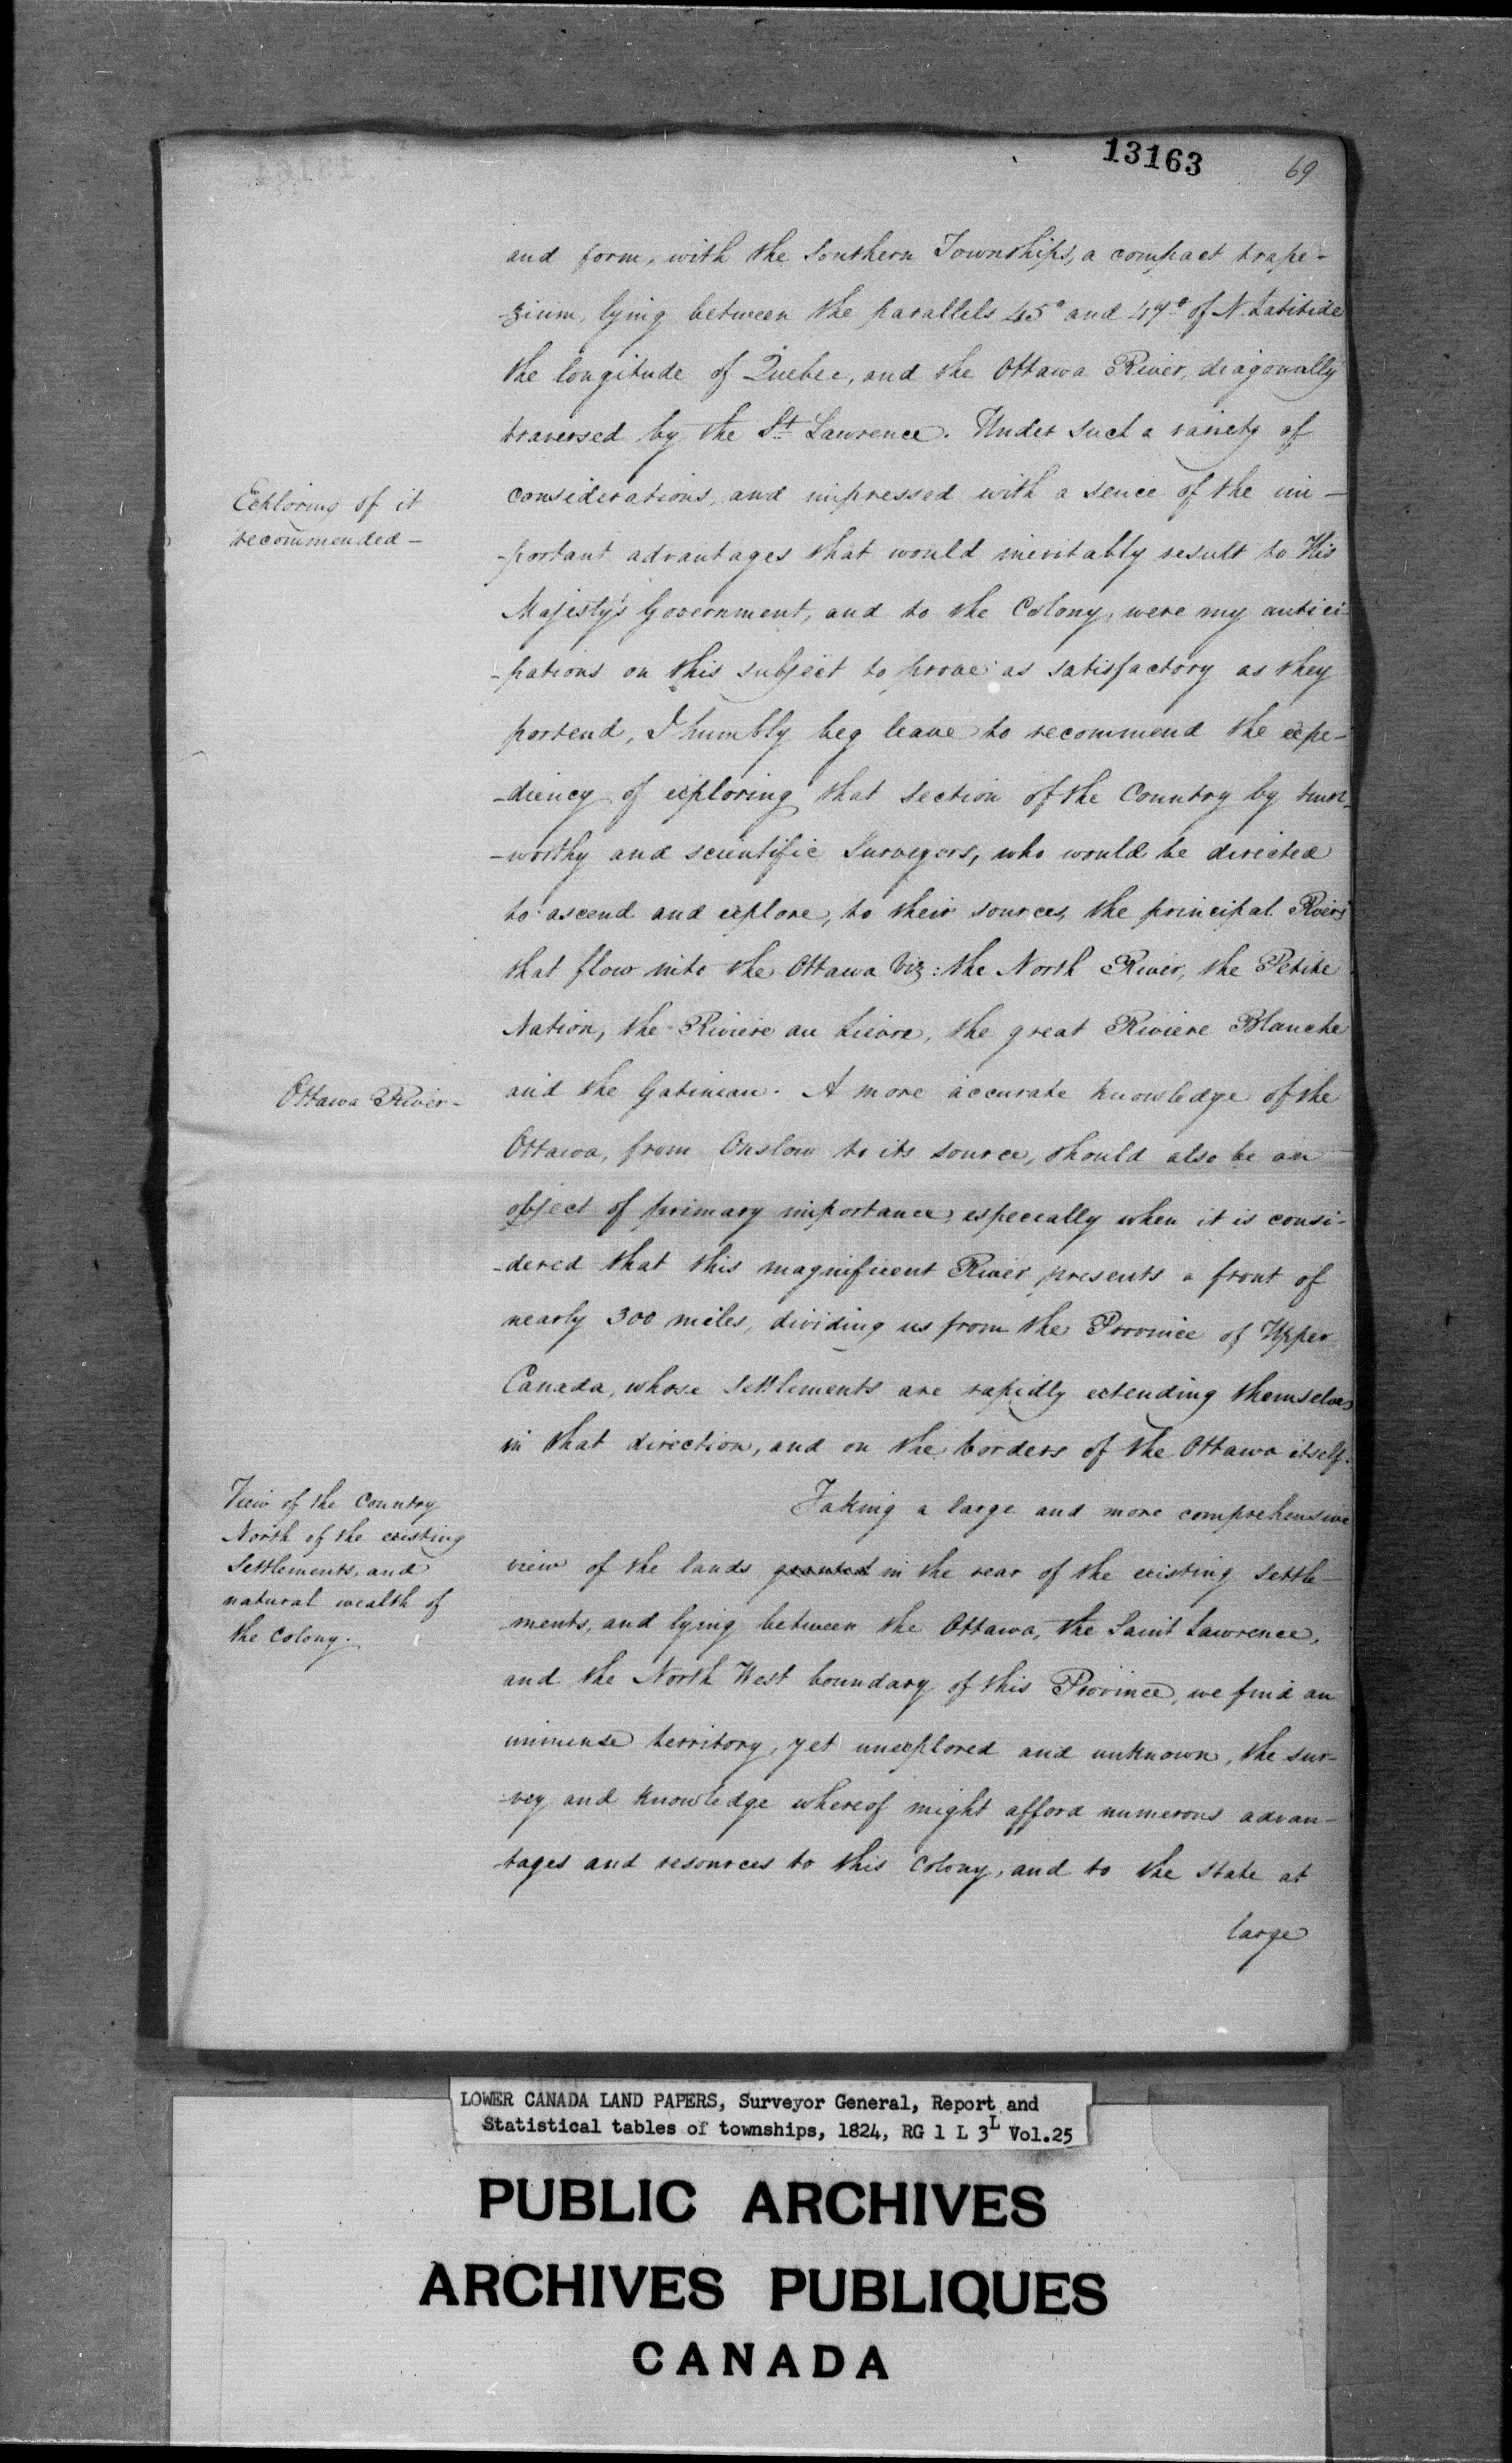 13163
69
and form, with the Southern Townships, a compact trape-
-zium, lying between the parallels 45° and 47° of N. Latitude
the longitude of Quebec, and the Ottawa River, diagonally
traversed by the St. Lawrence. Under such a variety of
Exploring of it
recommended -
considerations, and impressed with a sence of the im-
-portant advantages that would inevitably result to His
Majesty's Government, and to the Colony, were my antici-
-pations on this subject to prove as satisfactory as they
portend, I humbly beg leave to recommend the expe-
-diency of exploring that section of the Country by trust-
-worthy and scientific Surveyors, who would be directed
to ascend and explore, to their sources, the principal Rivers
that flow into the Ottawa Viz: the North River, the Petite
Nation, the Riviere au Lievre, the great Riviere Blanche
Ottawa River -
and the Gatineau. A more accurate knowledge of the
Ottawa, from Onslow to its source, should also be an
object of primary importance, especially when it is consi-
-dered that this magnificent River presents a front of
nearly 300 miles, dividing us from the Province of Upper
Canada, whose settlements are rapidly extending themselves
in that direction, and on the borders of the Ottawa itself.
View of the Country
North of the existing
Settlements, and
natural wealth of
the Colony.
Taking a large and more comprehensive
view of the lands granted in the rear of the existing settle-
-ments, and lying between the Ottawa, the Saint Lawrence,
and the North West boundary of this Province, we find an
immense territory, yet unexplored and unknown, the sur-
-vey and knowledge whereof might afford numerous advan-
-tages and resources to this Colony, and to the State at
large
LOWER CANADA LAND PAPERS, Surveyor General, Report and
Statistical tables of townships, 1824, RG 1 L 3L Vol.25
PUBLIC ARCHIVES
ARCHIVES PUBLIQUES
CANADA